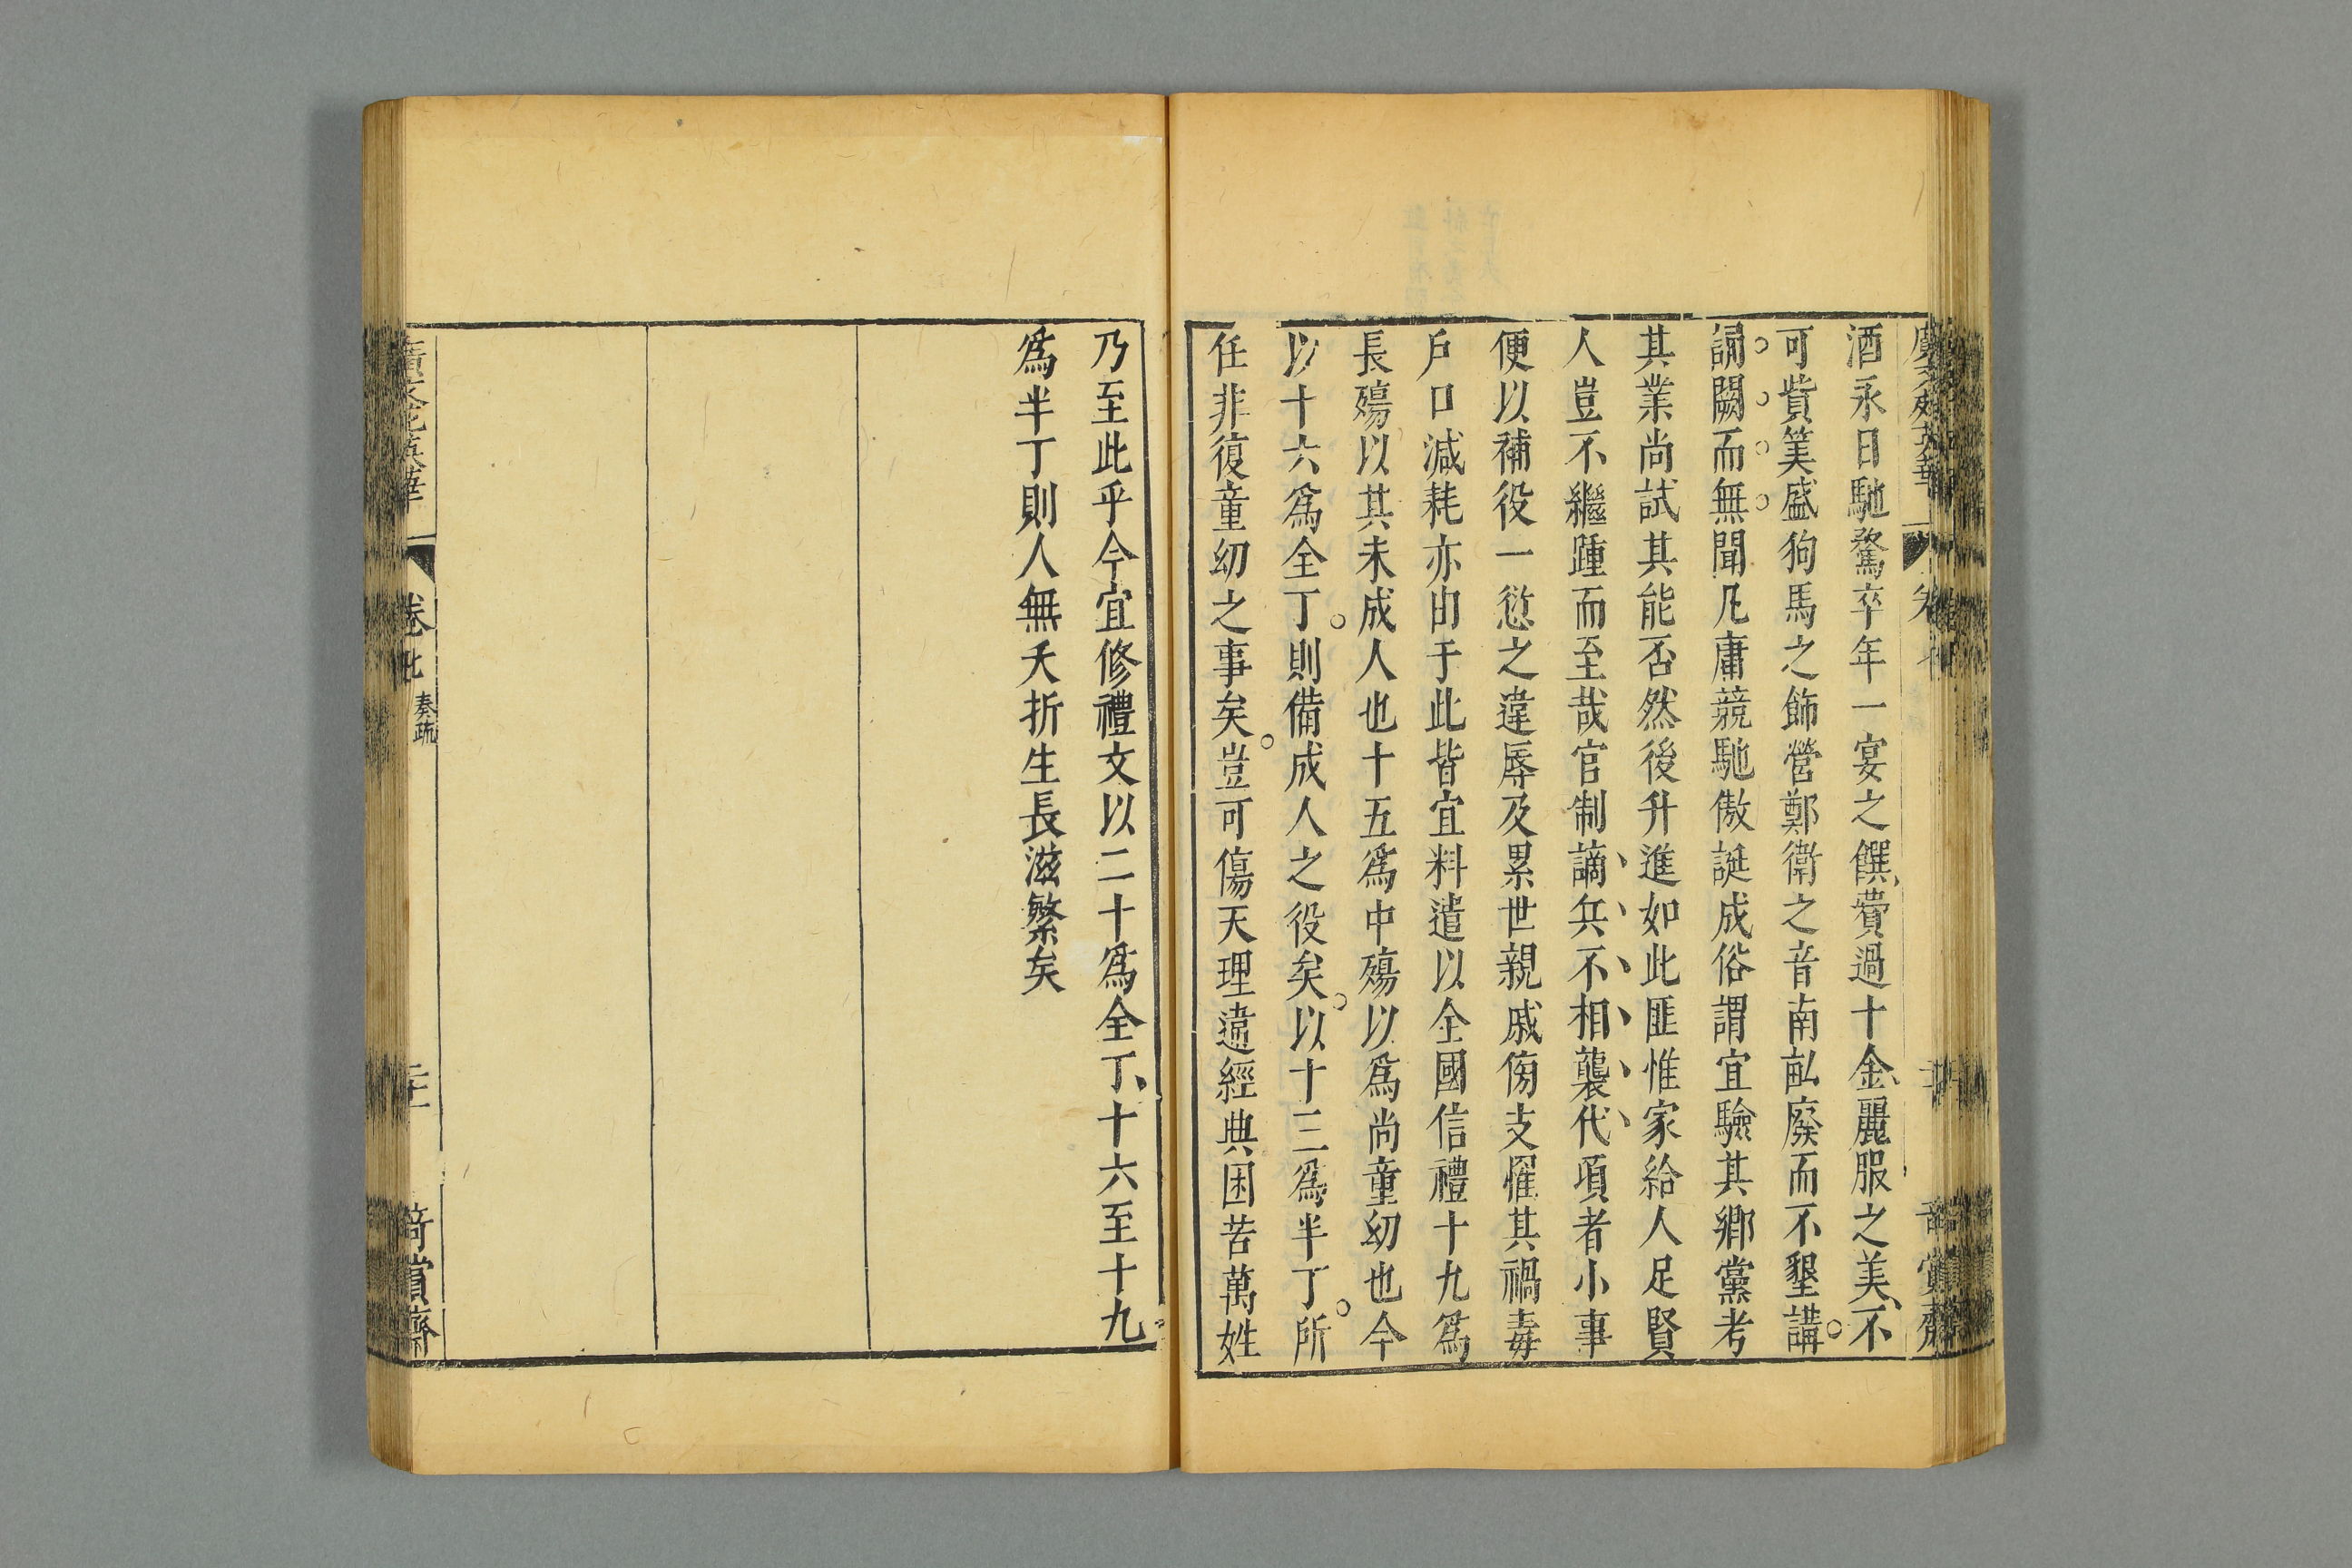 酒永日馳騖卒年一宴之饌費過十金麗服之美不
可貲筭盛狗馬之飾營鄭衛之音南畝廢而不墾講
誦闕而無聞凡庸競馳傲誕成俗謂宜驗其鄉黨考
其業尚試其能否然後升進如此匪惟家給人足賢
人豈不繼踵而至哉官制謫兵不相襲代頃者小事
便以補役一愆之違辱及累世親戚傍支罹其禍毒
戶口減耗亦由于此皆宜料遣以全國信禮十九爲
長殤以其未成人也十五爲中殤以爲尚童幼也今
以十六爲全丁則備成人之役矣以十三爲半丁所
任非復童幼之事矣豈可傷天理違經典困苦萬姓
乃至此乎今宜修禮文以二十爲全丁十六至十九
爲半丁則人無夭折生長滋繁矣
廣文苑英華 卷 奏疏